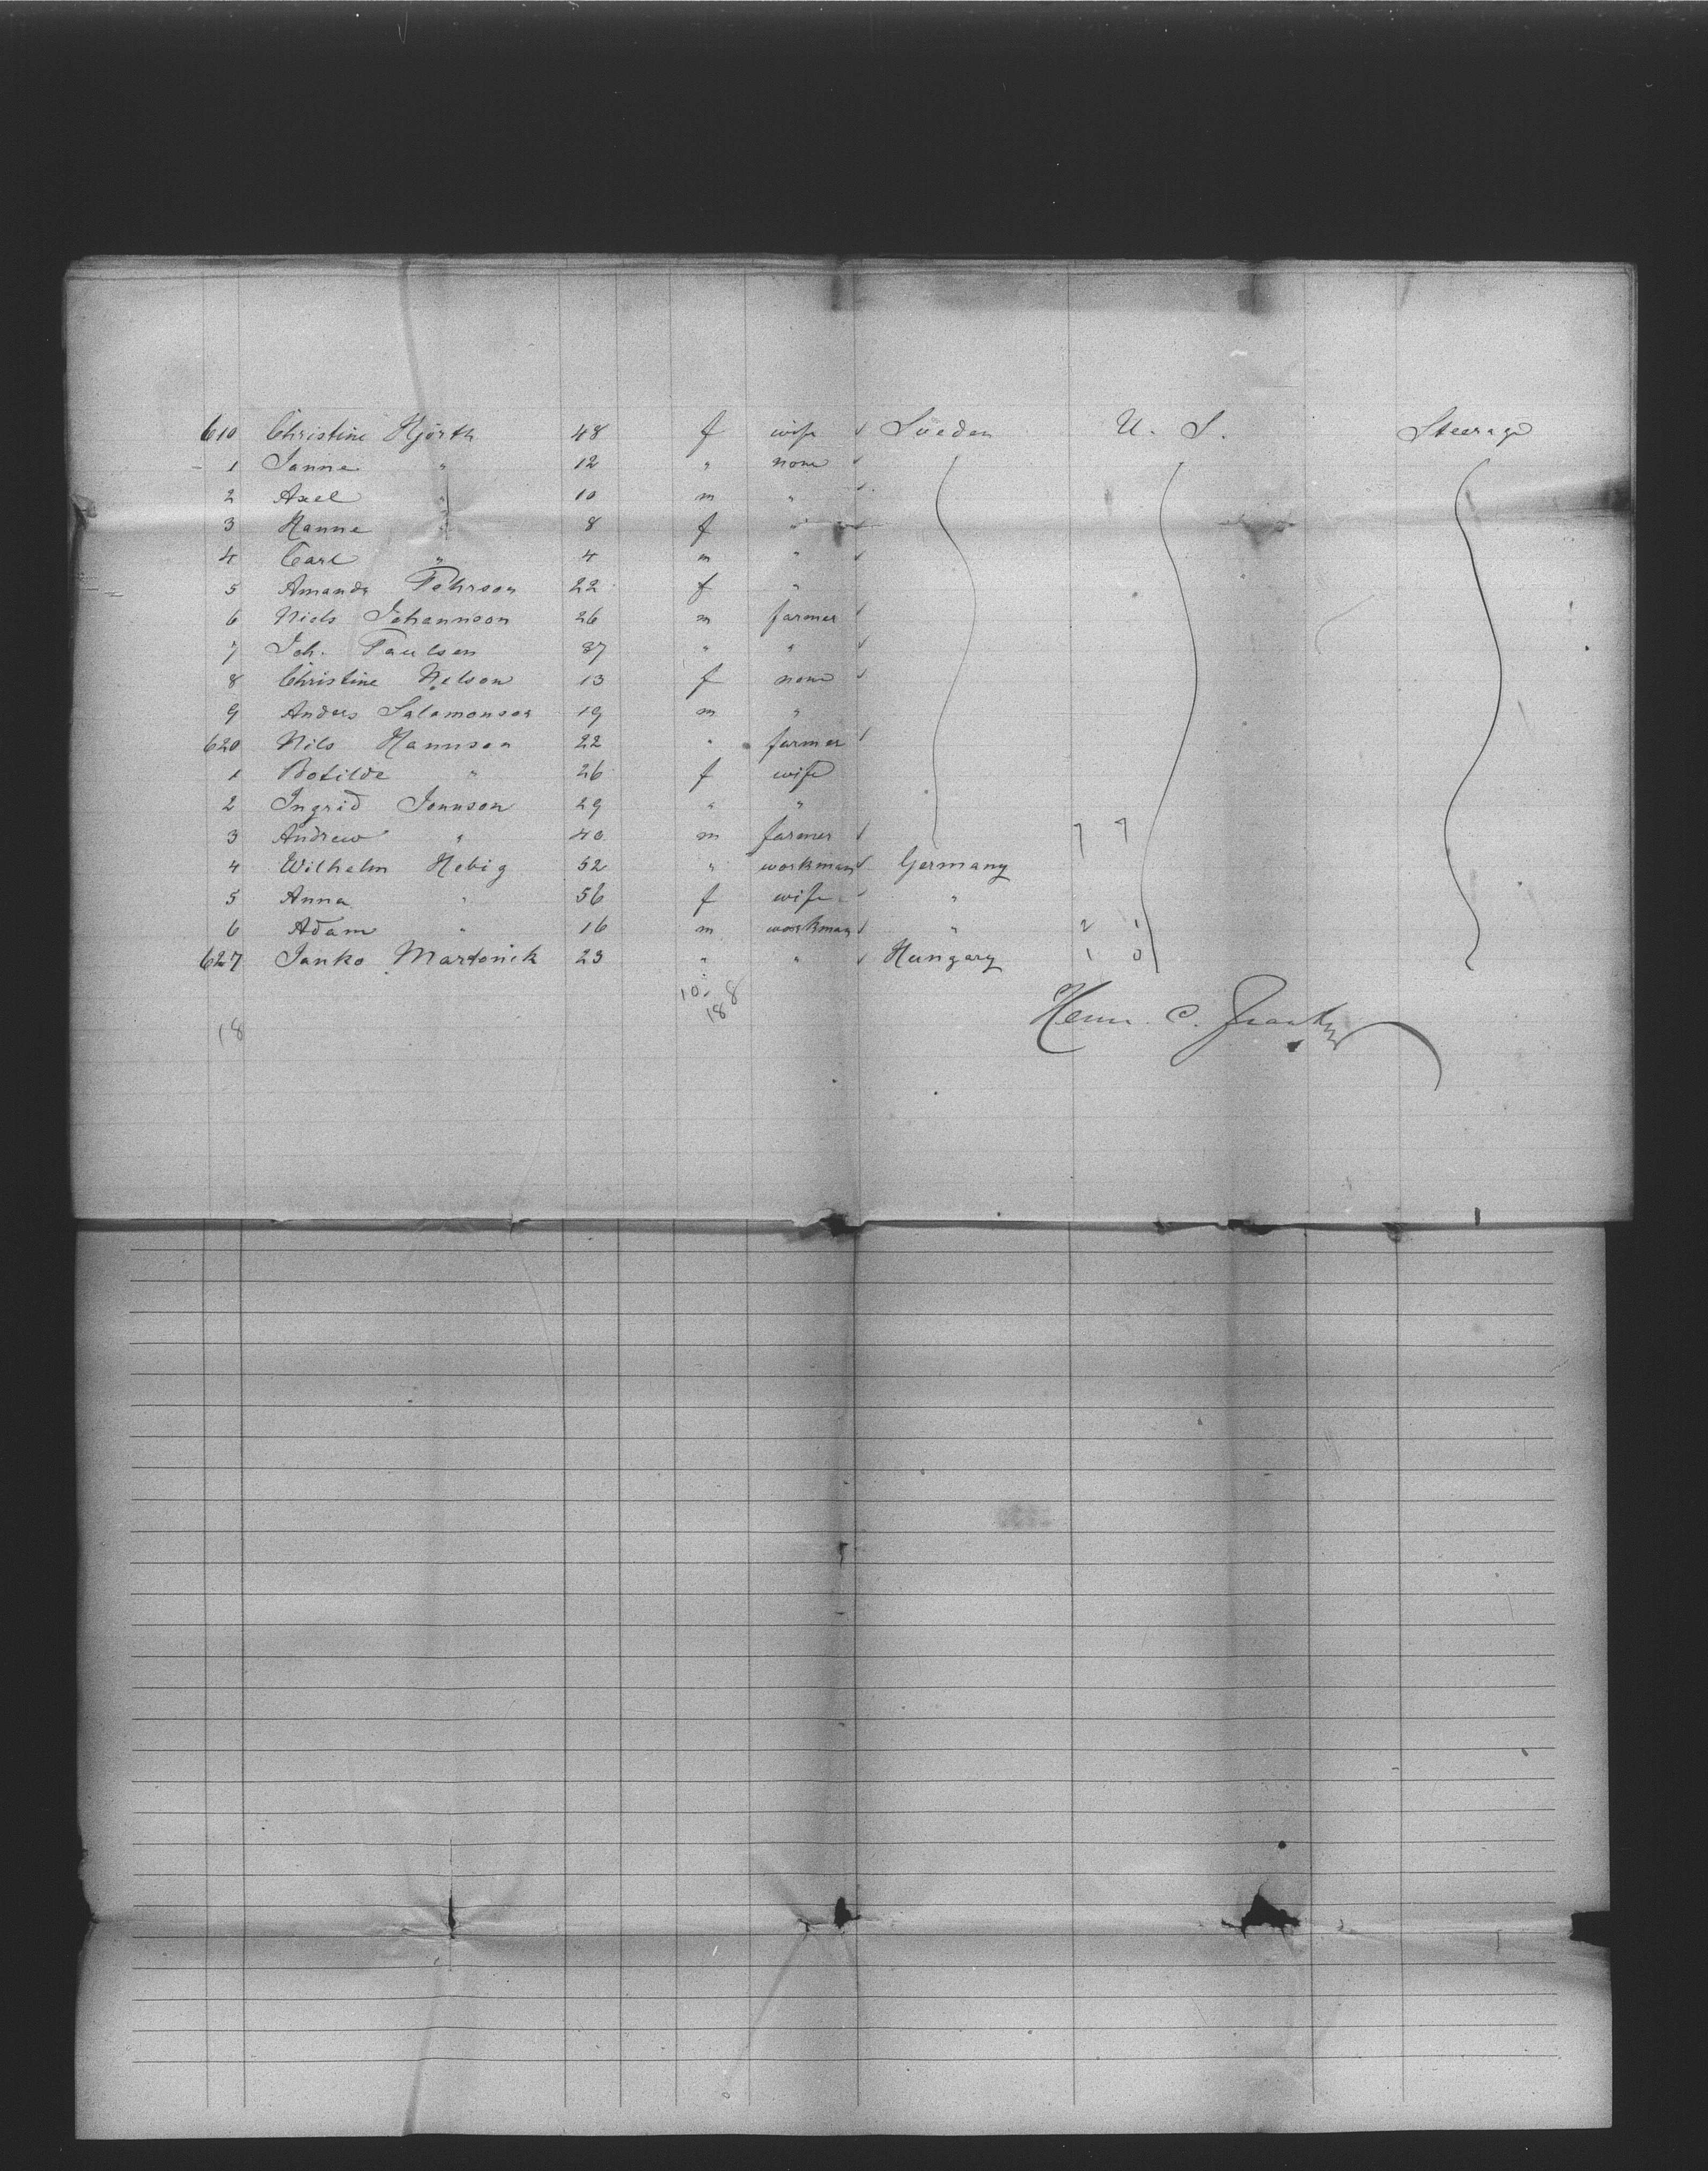 610 Christine Hjörth 48 f wife ✓ Süeden U. S. Steerage
1 Janne " 12 " none ✓
2 Axel " 10 m " ✓
3 Hanne " 8 f " ✓
4 Carl " 4 m " ✓
5 Amanda Pehrson 22 f "
6 Niels Johannson 26 m farmer ✓
7 Joh. Paulsen 37 " " ✓
8 Christine Nelson 13 f none ✓
9 Anders Salamonson 19 m "
620 Nils Hannson 22 " farmer ✓
1 Botilde " 26 f wife
2 Ingrid Jonnson 29 " "
3 Andrew " 40 m farmer ✓ 7 7
4 Wilhelm Hebig 52 " workman ✓ Germany
5 Anna " 56 f wife ✓ "
6 Adam " 16 m workman ✓ " 2 1
627 Janko Martonik 23 " " ✓ Hungary 1 0
10. 8
18
18